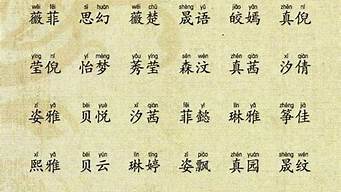 wēi fēi sī huàn wēi chǔ shèng yǔ jiǎo yān zhēn ní
薇菲 思幻 薇楚 晟语 皎嫣 真倪
yíng ní yí mèng xiù yíng sēn wèn zhēn qiàn xī qiàn
莹倪 怡梦 秀莹 森汶 真茜 汐倩
zī yǎ bèi yuè xī qiàn fēi yì lín yǎ zhēng jiā
姿雅 贝悦 汐茜 菲懿 琳雅 筝佳
xī yǎ bèi yún lín tíng zī piāo zhēn yuán shèng wén
熙雅 贝云 琳婷 姿飘 真园 晟纹